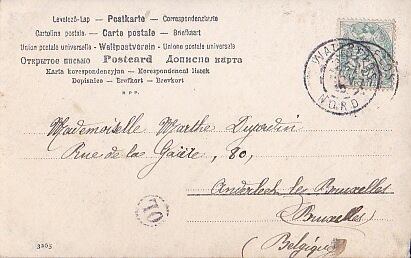 Levelező-Lap — Postkarte — Correspondenzkarte
Cartolina postale — Carte postale — Briefkaart
Union postale universelle — Weltpostverein — Unione postale universale
Открытое письмо Postcard Дописна карта
Karta korespondencyjna — Korespondenční lístek
Dopisnice — Brefkort — Brevkort
BPP.
WATTRELOS
NORD
Mademoiselle Marthe Dujardin
Rue de la Gaïté, 80,
Anderlech les Bruxelles
Bruxelles
(Belgique)
70
3265